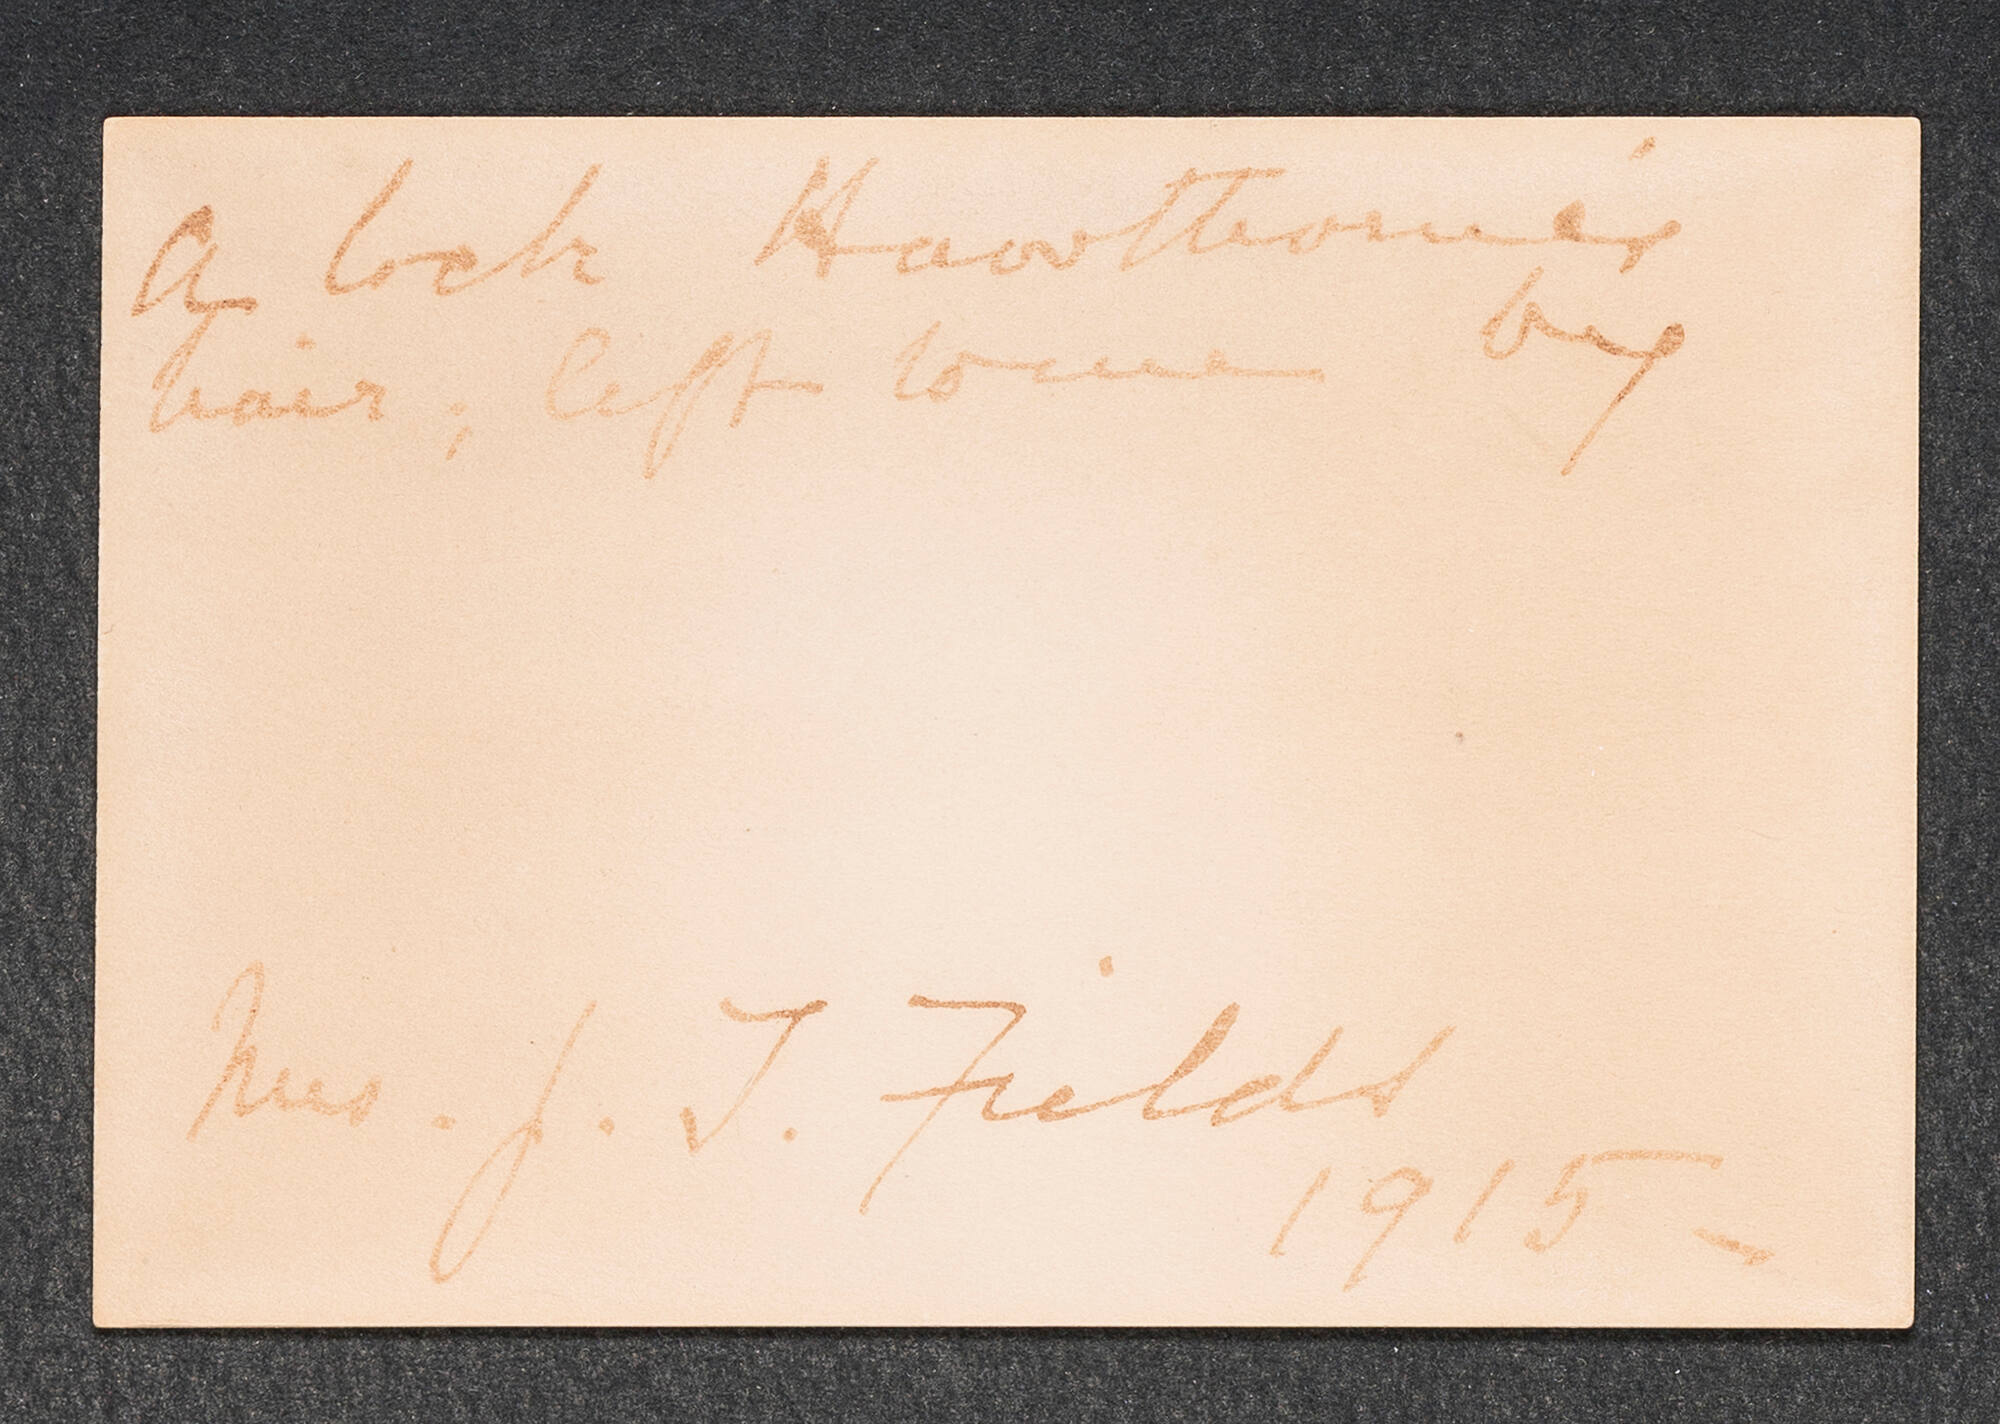 A lock Hawthorne's
hair, left to me by
Mrs. J. T. Fields
1915 -